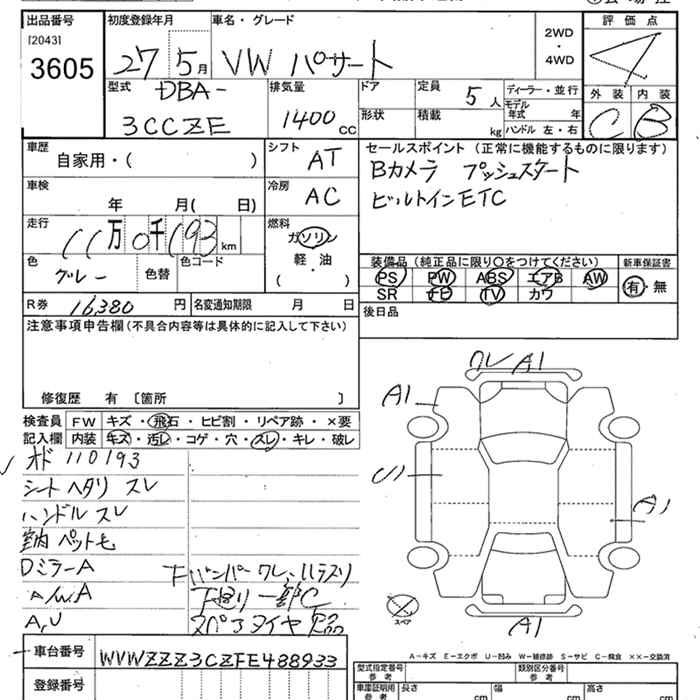 出品番号 初度登録年月 車名・グレード 評価点
[2043] 2WD
3605 27 5月 VW パサート ・ 4
4WD
型式 DBA- 排気量 ドア 定員 5人 ディーラー・並行 外装 内装
3CCZE 1400cc 形状 積載 kg モデル年式 年 C B
ハンドル 左・右
車歴 シフト セールスポイント (正常に機能するものに限ります)
自家用・( ) AT Bカメラ プッシュスタート
車検 冷房 ビルトインETC
年 月( 日) AC
走行 燃料
11万0千193km ガソリン
色 色コード 軽・油 装備品 (純正品に限り○をつけてください) 新車保証書
グレー 色替 ( ) PS PW ABS エアB AW 有・無
SR ナビ TV カワ
R券 16,380円 名変通知期限 月 日 後日品
注意事項申告欄 (不具合内容等は具体的に記入して下さい)
ワレ A1
A1
修復歴 有 〔箇所 〕
検査員 FW キズ・飛石・ヒビ割・リペア跡・×要
記入欄 内装 キズ・汚レ・コゲ・穴・スレ・キレ・破レ
オド 110193
U1
シートヘタリ スレ
A1
ハンドル スレ
室内ペット毛
DミラーA
下バンパーワレ、
A/WA
下廻り一部C
A,U
スペアタイヤ欠品
スペア
A1
A-キズ E-エクボ U-凹み W-補修跡 S-サビ C-腐食 ××-交換済
車台番号 WVWZZZ3CZFE488933
型式指定番号 参考 類別区分番号 参考
登録番号 車庫証明用 参考 長さ cm 幅 cm 高さ cm